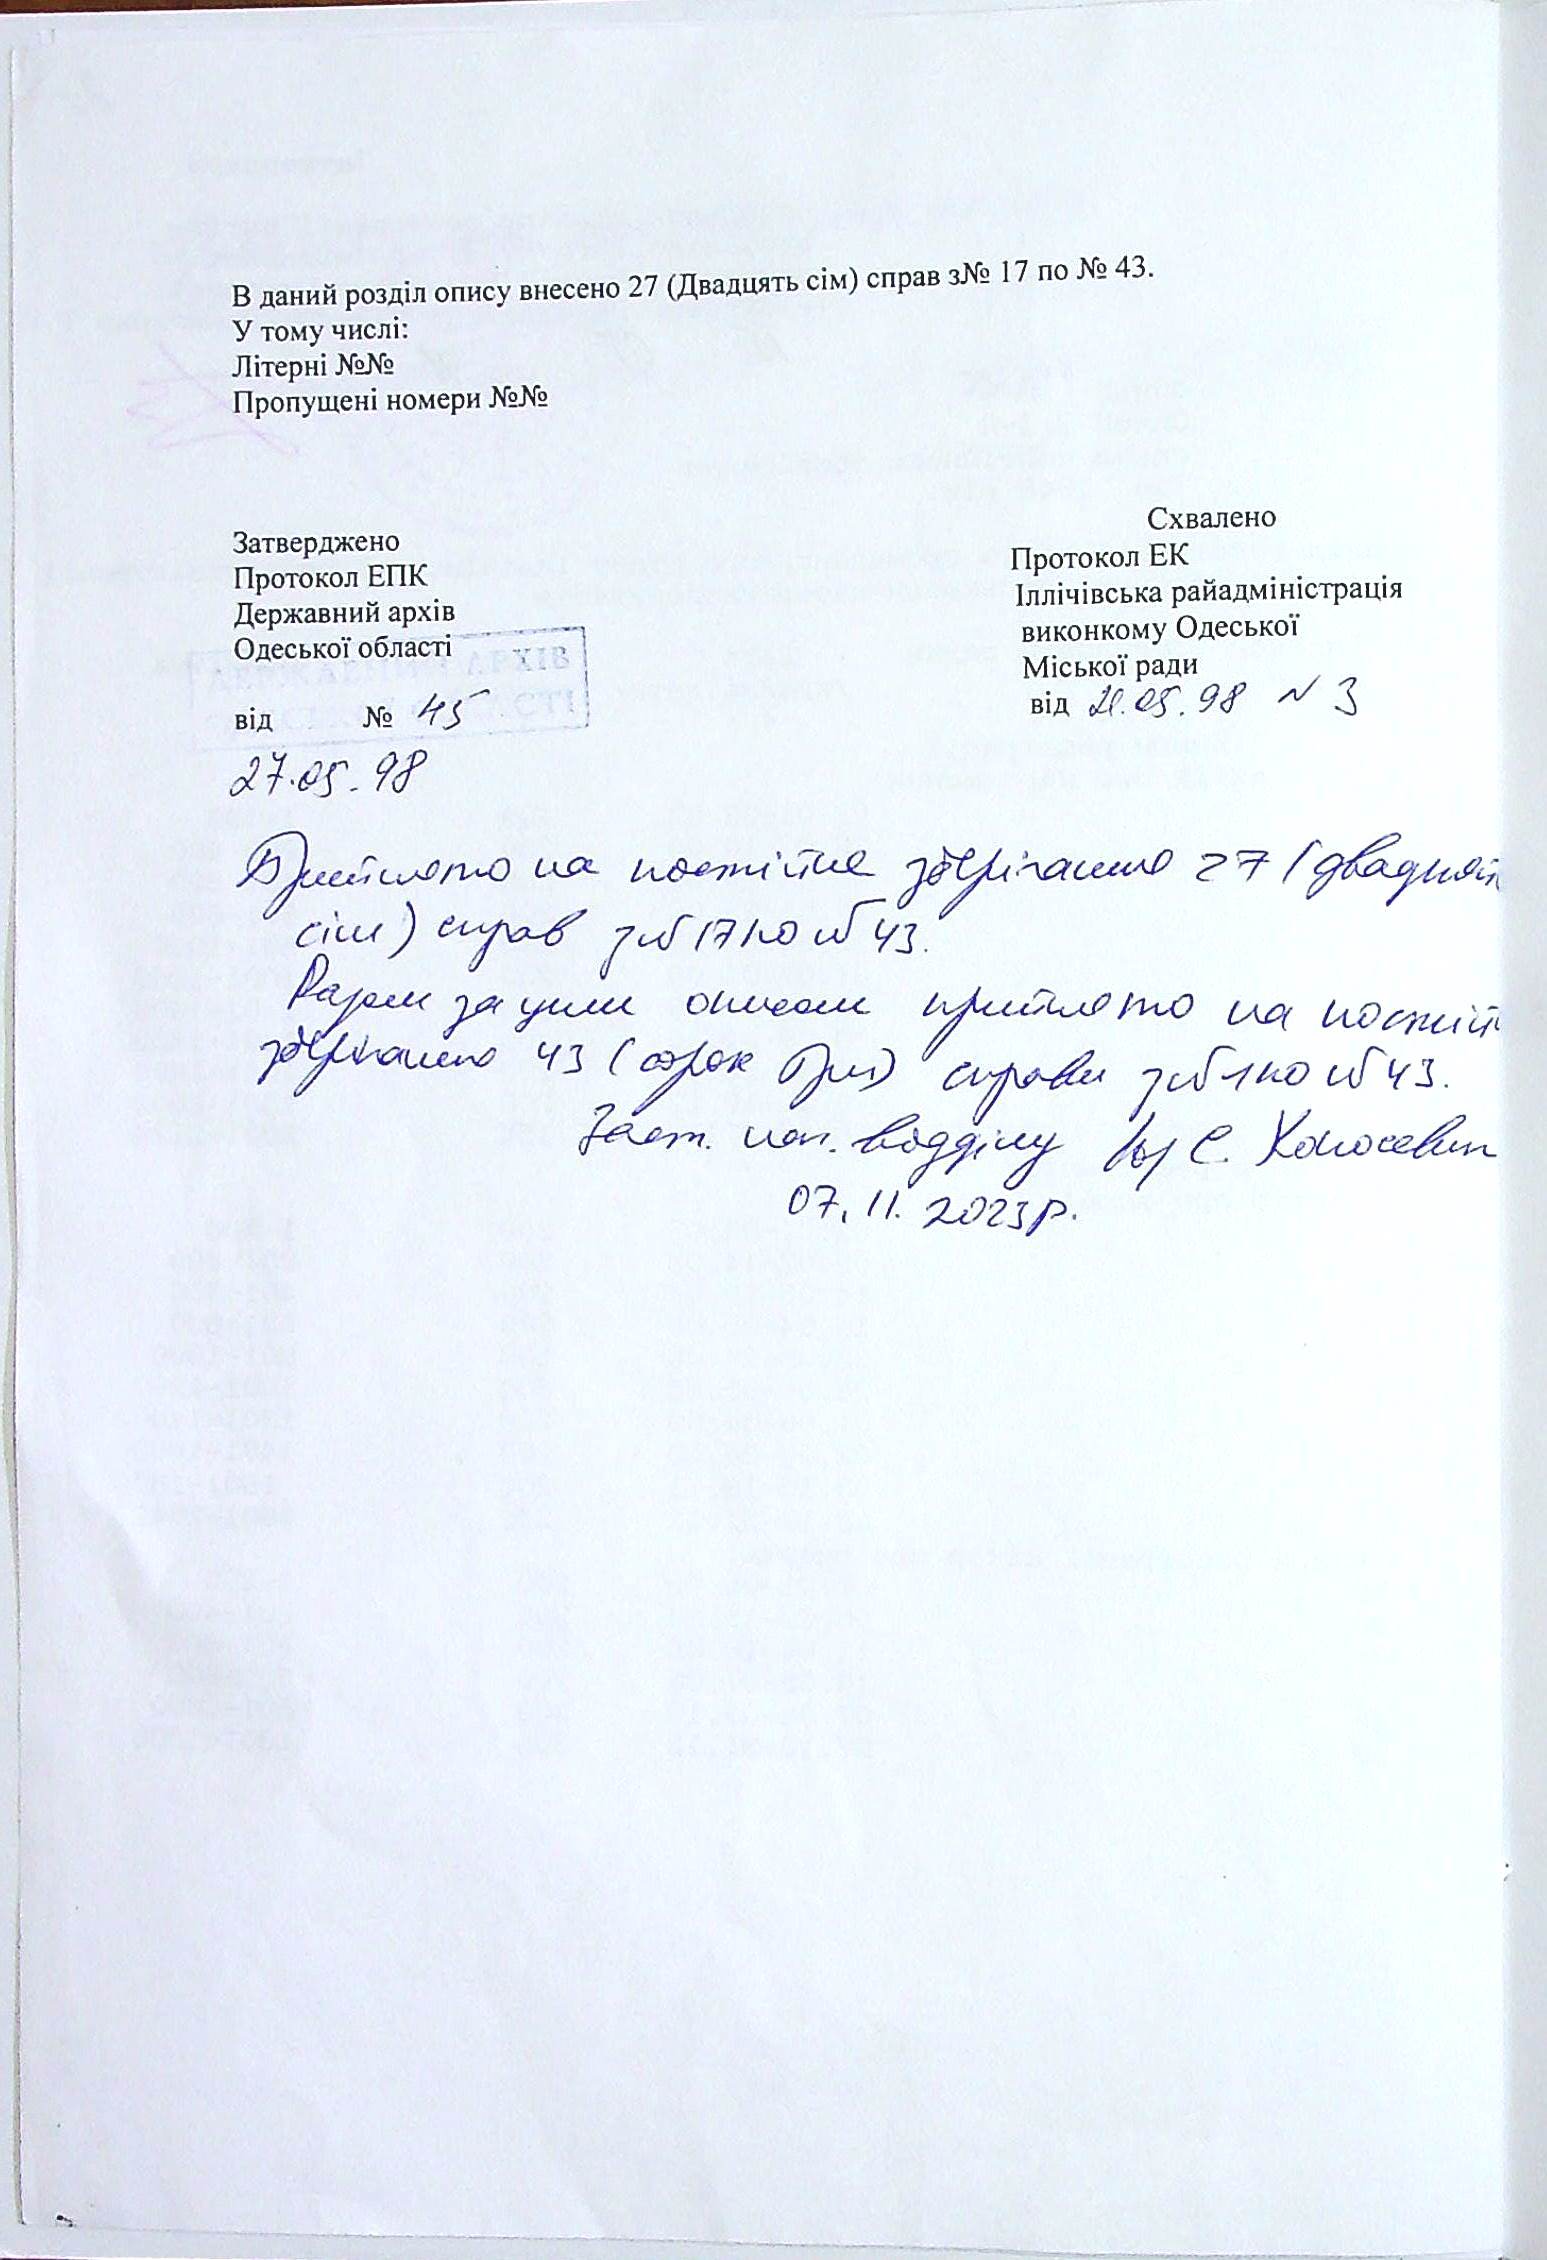 В даний розділ опису внесено 27 (Двадцять сім) справ з№ 17 по № 43.
У тому числі:
Літерні №№
Пропущені номери №№
Затверджено
Протокол ЕПК
Державний архів
Одеської області
ДЕРЖАВНИЙ АРХІВ
ОДЕСЬКОЇ ОБЛАСТІ
від № 45
27.05.98
Схвалено
Протокол ЕК
Іллічівська райадміністрація
виконкому Одеської
Міської ради
від 21.05.98 N 3
Прийнято на постійне зберігання 27 (двадцять
сім) справ з № 17 по № 43.
Разом за цим описом прийнято на постій
зберігання 43 (сорок три) справи з № 1 по № 43.
Заст. нач. відділу С.
07.11.2023р.